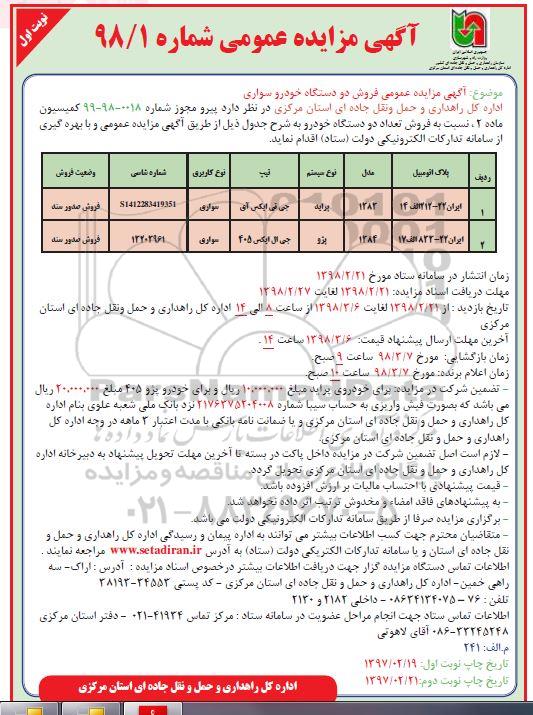 نوبت اول
آگهی مزایده عمومی شماره ۹۸/۱
جمهوری اسلامی ایران
وزارت راه و شهرسازی
سازمان راهداری و حمل و نقل جاده ای کشور
اداره کل راهداری و حمل و نقل جاده ای استان مرکزی
موضوع: آگهی مزایده عمومی فروش دو دستگاه خودرو سواری
اداره کل راهداری و حمل ونقل جاده ای استان مرکزی در نظر دارد پیرو مجوز شماره ۰۰۱۸-۹۸-۹۹ کمیسیون
ماده ۲ ، نسبت به فروش تعداد دو دستگاه خودرو به شرح جدول ذیل از طریق آگهی مزایده عمومی و با بهره گیری
از سامانه تدارکات الکترونیکی دولت (ستاد) اقدام نماید.
ردیف پلاک اتومبیل مدل نوع سیستم تیپ نوع کاربری شماره شاسی وضعیت فروش
۱ ایران۲۲-۲۱۲الف ۱۴ ۱۳۸۳ پراید جی تی ایکس آی سواری S1412283419351 فروش صدور سند
۲ ایران۲۲-۸۲۲الف۱۷ ۱۳۸۴ پژو جی ال ایکس ۴۰۵ سواری ۱۳۲۰۲۹۶۱ فروش صدور سند
زمان انتشار در سامانه ستاد مورخ ۱۳۹۸/۲/۲۱
مهلت دریافت اسناد مزایده: ۱۳۹۸/۲/۲۱ لغایت ۱۳۹۸/۲/۲۷
تاریخ بازدید : از ۱۳۹۸/۲/۲۱ لغایت ۱۳۹۸/۳/۶ از ساعت ۸ الی ۱۴ اداره کل راهداری و حمل ونقل جاده ای استان
مرکزی
آخرین مهلت ارسال پیشنهاد قیمت: ۱۳۹۸/۳/۶ ساعت ۱۴ .
زمان بازگشایی: مورخ ۹۸/۳/۷ ساعت ۹ صبح.
زمان اعلام برنده: مورخ ۹۸/۳/۷ ساعت ۱۰ صبح.
– تضمین شرکت در مزایده: برای خودروی پراید مبلغ ۱۰،۰۰۰،۰۰۰ ریال و برای خودرو پژو ۴۰۵ مبلغ ۲۰،۰۰۰،۰۰۰ ریال
می باشد که بصورت فیش واریزی به حساب سیبا شماره ۲۱۷۶۳۷۵۲۰۴۰۰۸ نزد بانک ملی شعبه علوی بنام اداره
کل راهداری و حمل و نقل جاده ای استان مرکزی و یا ضمانت نامه بانکی با مدت اعتبار ۲ ماهه در وجه اداره کل
راهداری و حمل و نقل جاده ای استان مرکزی.
– لازم است اصل تضمین شرکت در مزایده داخل پاکت در بسته تا آخرین مهلت تحویل پیشنهاد به دبیرخانه اداره
کل راهداری و حمل و نقل جاده ای استان مرکزی تحویل گردد.
– قیمت پیشنهادی با احتساب مالیات بر ارزش افزوده باشد.
– به پیشنهادهای فاقد امضاء و مخدوش ترتیب اثر داده نخواهد شد.
– برگزاری مزایده صرفا از طریق سامانه تدارکات الکترونیکی دولت می باشد.
– متقاضیان محترم جهت کسب اطلاعات بیشتر می توانند به اداره پیمان و رسیدگی اداره کل راهداری و حمل و
نقل جاده ای استان و یا سامانه تدارکات الکتریکی دولت (ستاد) به آدرس www.setadiran.ir مراجعه نمایند .
اطلاعات تماس دستگاه مزایده گزار جهت دریافت اطلاعات بیشتر درخصوص اسناد مزایده : آدرس : اراک- سه
راهی خمین- اداره کل راهداری و حمل و نقل جاده ای استان مرکزی – کد پستی ۳۴۵۵۳-۳۸۱۹۳
تلفن : ۷۶ – ۰۸۶۳۴۱۳۴۰۷۵ – داخلی ۲۱۸۲ و ۲۱۳۰
اطلاعات تماس ستاد جهت انجام مراحل عضویت در سامانه ستاد : مرکز تماس ۴۱۹۳۴-۰۲۱ - دفتر استان مرکزی
۳۳۲۴۵۲۴۸-۰۸۶ آقای لاهوتی
م.الف: ۲۴۱
تاریخ چاپ نوبت اول: ۱۳۹۷/۰۲/۱۹
تاریخ چاپ نوبت دوم: ۱۳۹۷/۰۲/۲۱
اداره کل راهداری و حمل و نقل جاده ای استان مرکزی